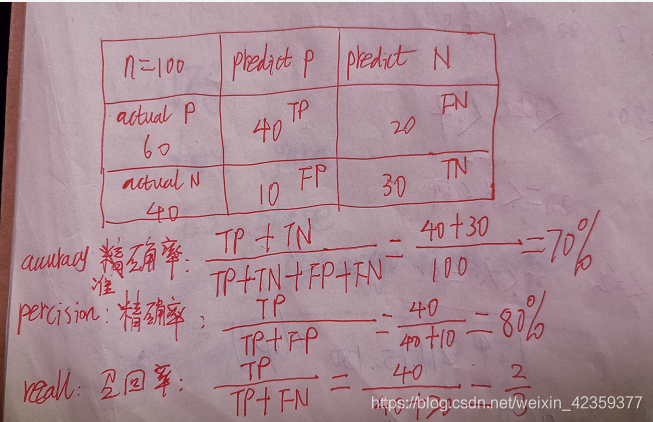 n=100 predict P predict N
actual P 60 40 TP 20 FN
actual N 40 10 FP 30 TN
精确率: TP + TN / TP+TN+FP+FN = 40+30 / 100 = 70%
准
percision: 精确率: TP / TP+FP = 40 / 40+10 = 80%
recall: 召回率: TP / TP+FN = 40 / = 2 / 3
https://blog.csdn.net/weixin_42359377